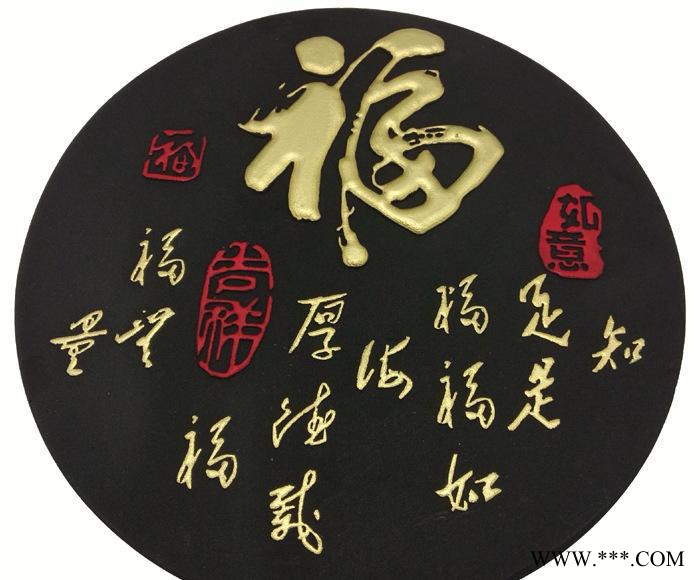 福
如意
知
足是
福福如
海
厚德載
吉祥
福
福無
量
WWW.***.COM